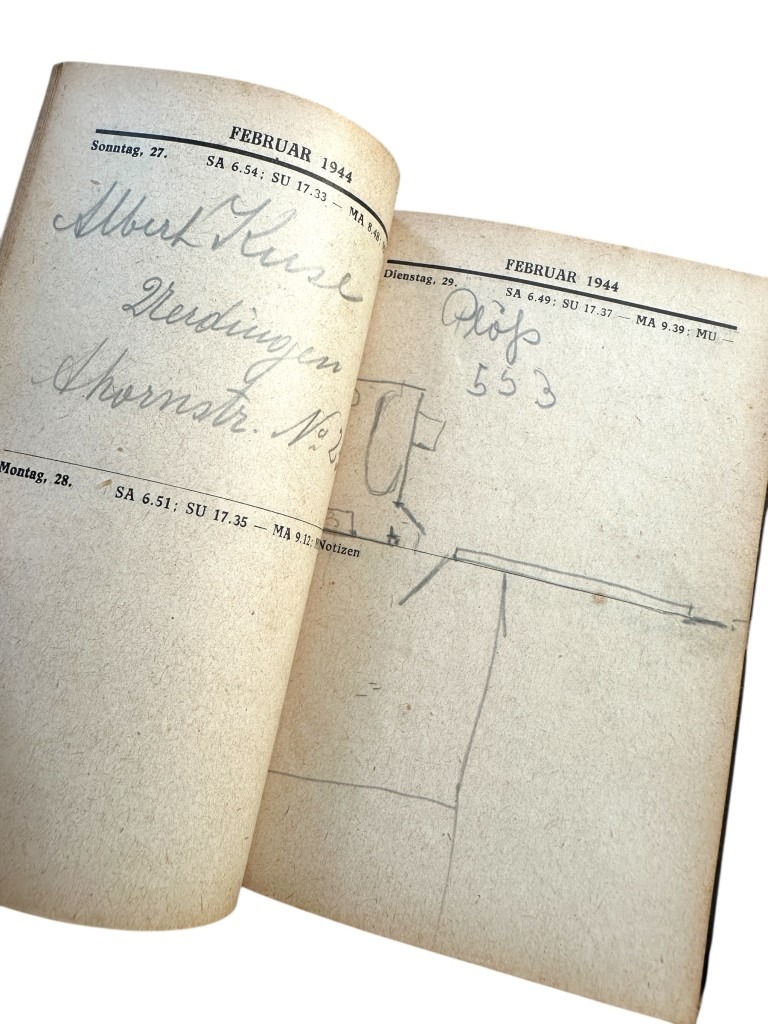 FEBRUAR 1944
Sonntag, 27.
SA 6.54; SU 17.33 — MA 8.48;
Albert Kuse
Uerdingen
Ahornstr. No 2
Montag, 28.
SA 6.51; SU 17.35 — MA 9.12;
FEBRUAR 1944
Dienstag, 29.
SA 6.49; SU 17.37 — MA 9.39; MU —
Plöß
553
Notizen